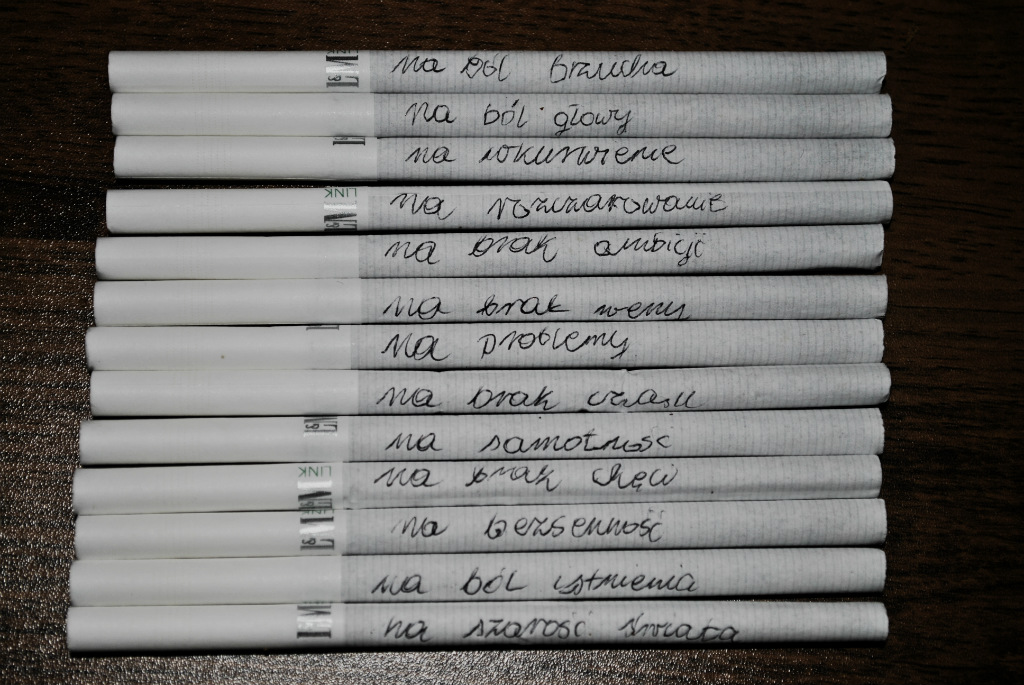 na ból brzucha
na ból głowy
na wkurwienie
LINK
na rozczarowanie
na brak ambicji
na brak weny
na problemy
na brak czasu
na samotność
LINK
na brak chęci
na bezsenność
na ból istnienia
na szarość świata